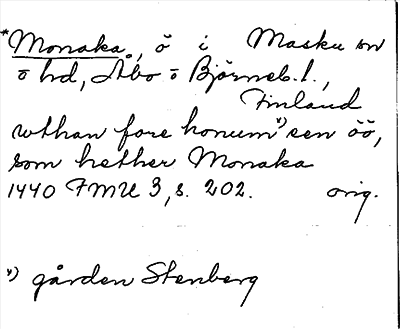 *Monaka, ö i Masku sn
o hd, Åbo o Björneb. l.,
Finland
wthan fore honum ˣ⁾ een öö,
som hether Monaka
1440 FMU 3, s. 202. orig.
ˣ⁾ gården Stenberg